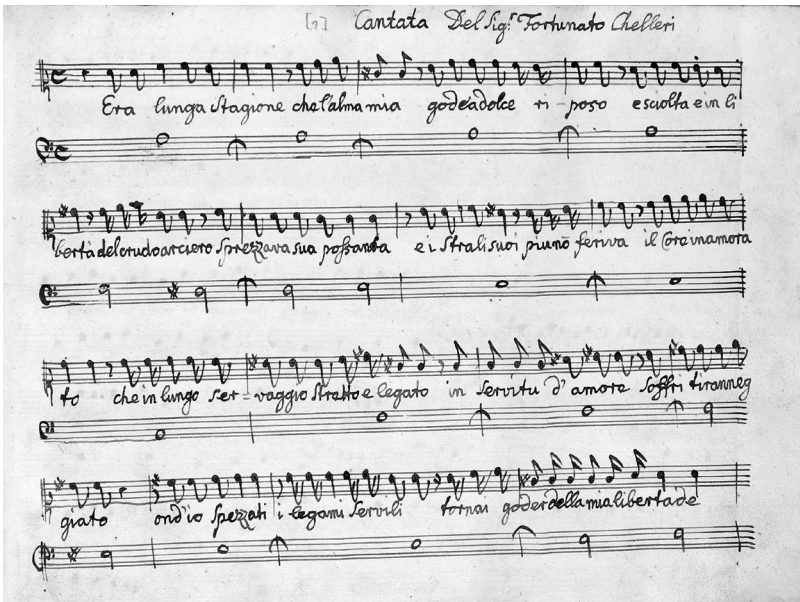 [1] Cantata Del Sig.r Fortunato Chelleri
Era lunga stagione che l'alma mia godea dolce ri-poso e sciolta e in li
berta del crudo arciero sprezzava sua possanza e i strali suoi piu nō feriva il Core inamora
to che in lungo ser-vaggio stretto e legato in servitu d'amore soffri tiranneg
giato ond'io spezzati i legami servili tornai goder della mia libertade